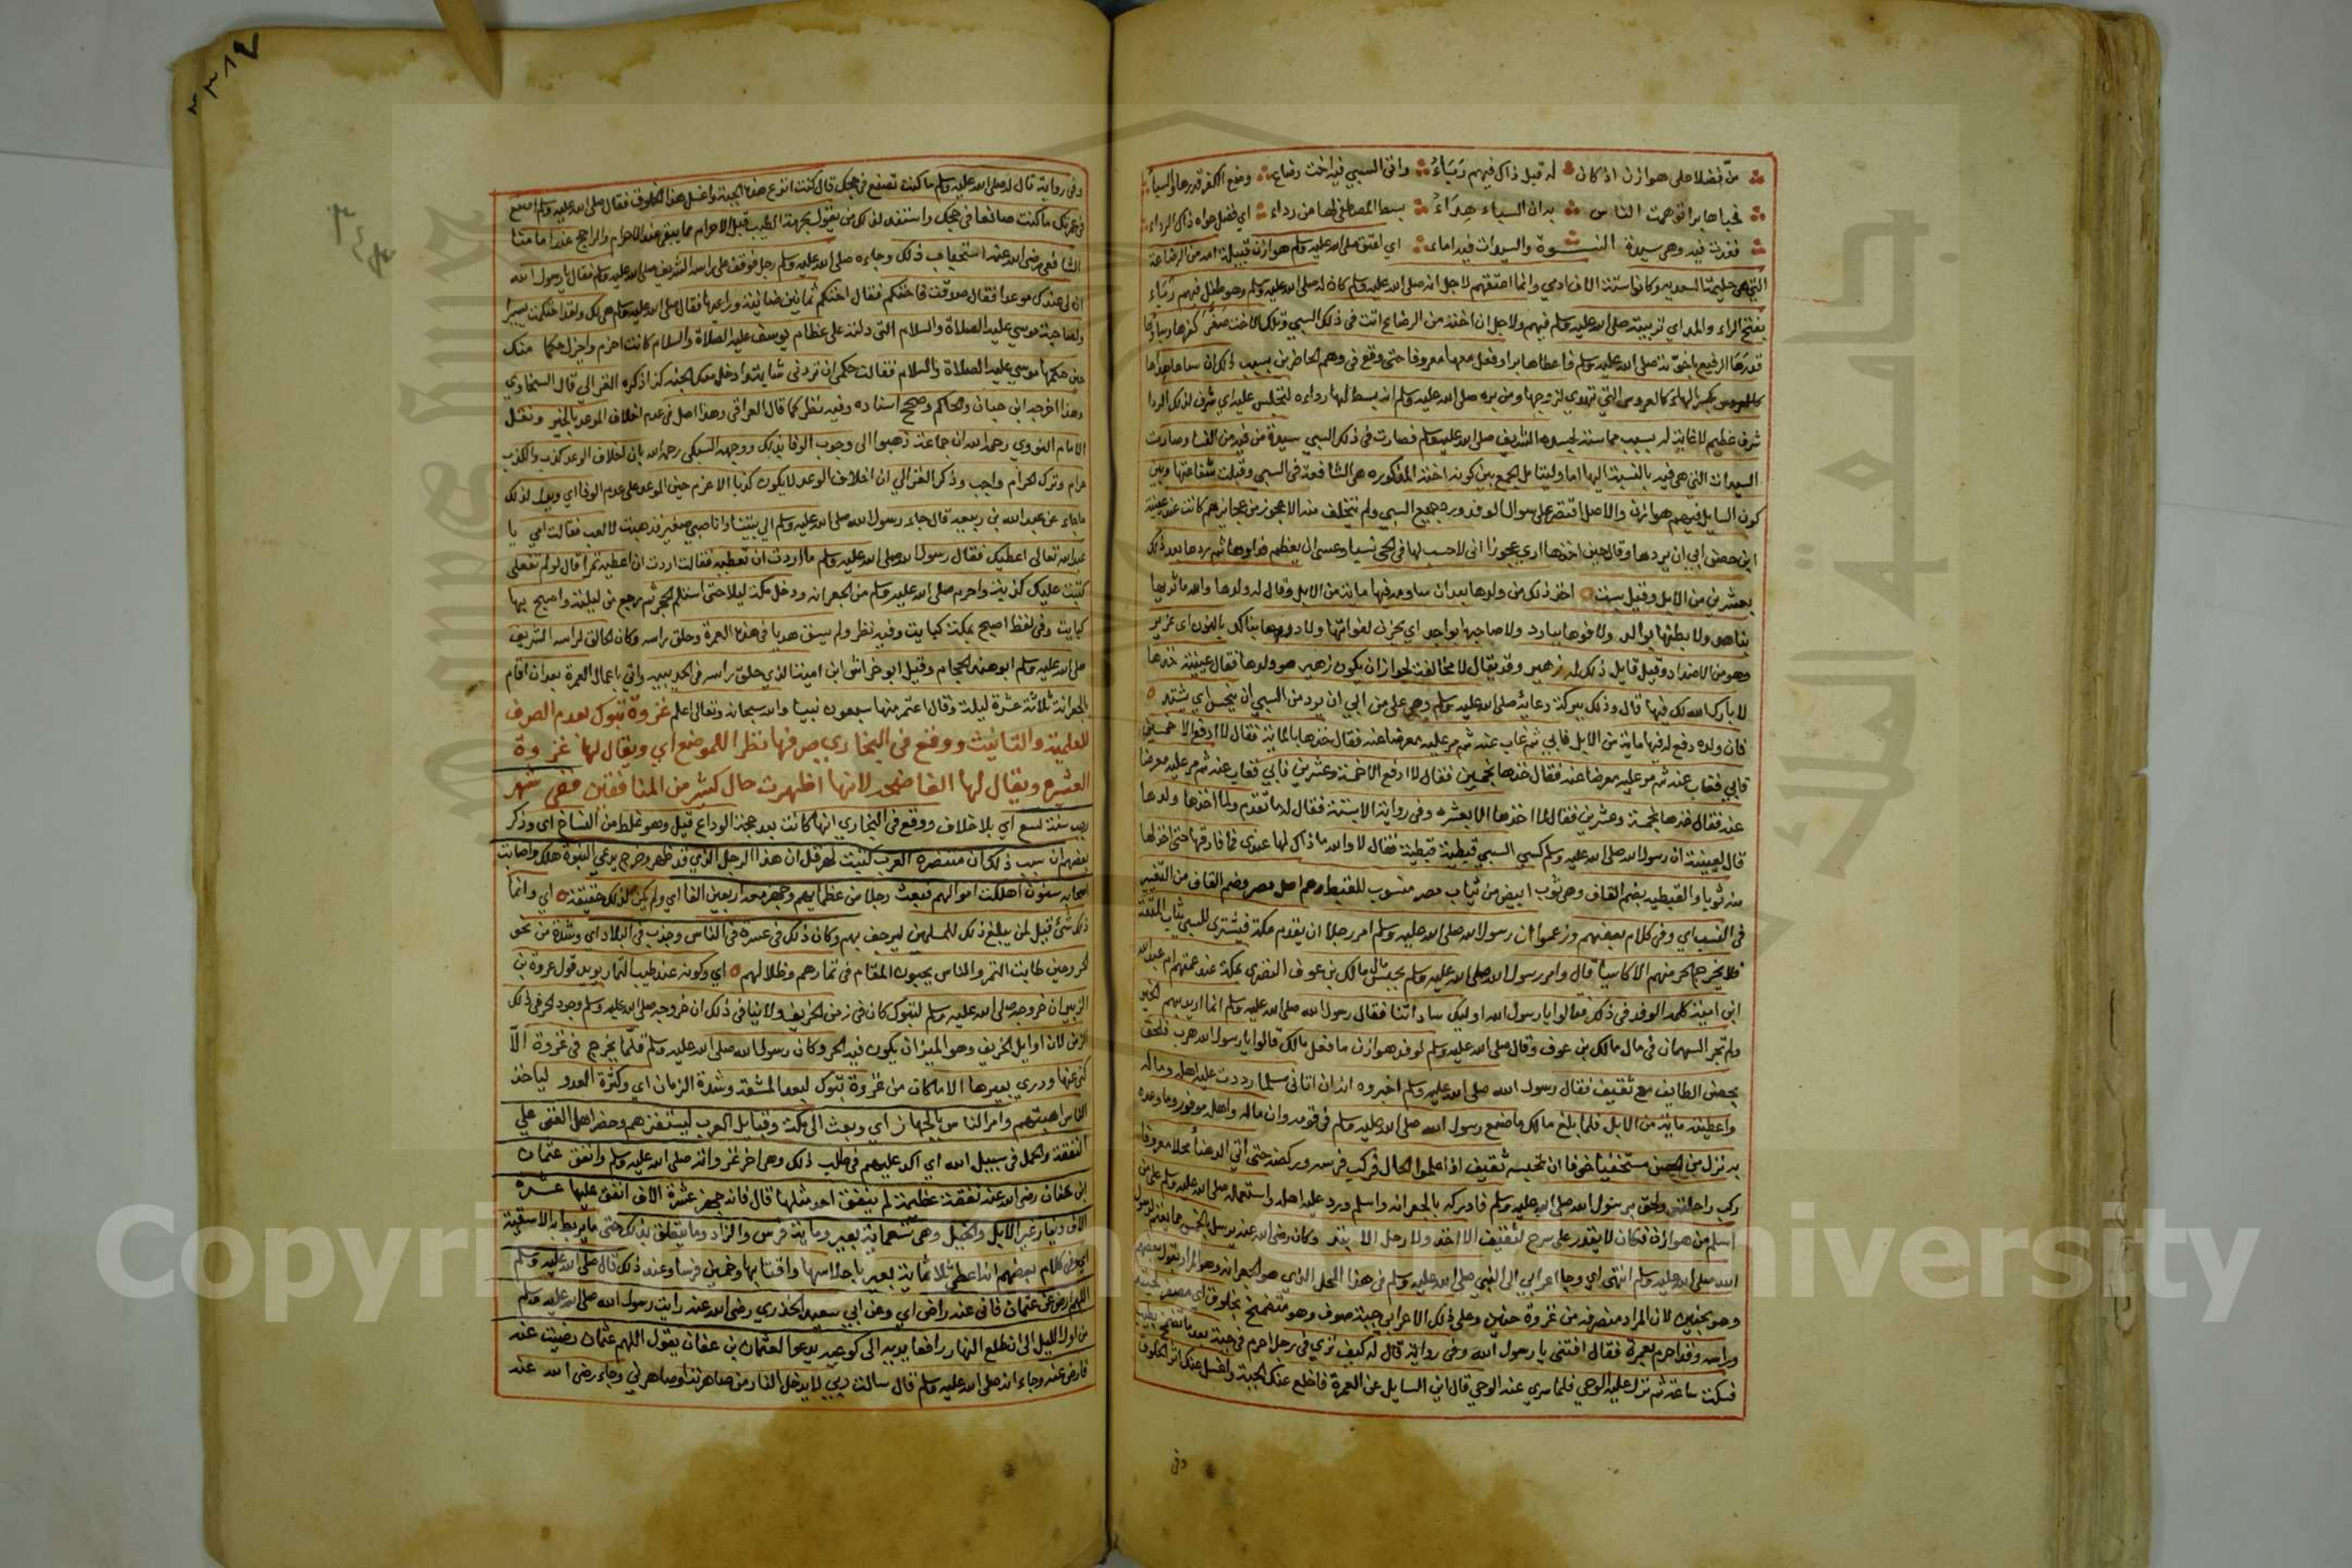 منّ فضلا على هوازن اذ كان له قبل ذاك فيهم رَبَاءُ وافى السبي فيه اخت رضاع وضع الكفر قدرها والسباء
فحباها برا توهمت الناس بدان السباء هِدَاءُ بسط المصطفى لها من رداء اي فضل حواه ذاك الرداء
فغدت فيه وهي سيدة النسوة والسيدات فيه اماء اي اعتق صلى الله عليه وسلم هوازن قبيلة امه من الرضاعة
التي هي حليمة السعدية وكانوا ستة الاف ادمي وانما اعتقهم لاجل انه صلى الله عليه وسلم كان له صلى الله عليه وسلم وهو طفل فيهم ربّاء
بفتح الراء والمد اي تربية صلى الله عليه وسلم فيهم ولاجل ان اخته من الرضاع اتت في ذلك السبي وتلك الاخت صغّر كفرها وسباؤها
قدرها الرفيع باخوّته صلى الله عليه وسلم فاعطاها برا وفعل معها معروفا حتى وقع في وهم الحاضرين بسبب ذلك ان سباها هداها
كالعروس بكسر الهاء كالعروس التي تهدي لزوجها ومن بره صلى الله عليه وسلم انه بسط لها رداءه لتجلس عليه اي شرف لذلك الردا
شرف عظيم لا غاية له بسبب مماسته لجسده الشريف صلى الله عليه وسلم فصارت في ذلك السبي سيدة من فيه من النسا وصارت
السيدات التي هي فيه بالنسبة اليها اما وليتامل الجمع بين كونه اخته المذكورة هي الشافعة في السبي وقبلت شفاعتها وبين
كون السايل فيهم هوازن والاصل اقتصر على سوال الوفد ورد جميع السبي ولم يتخلف منه الا عجوز من عجايزهم كانت عند عيينة
ابن حصن ابي ان يردها وقال حين اخذها اري عجوزا اني لاحسب لها في الحي نسبا وعسى ان يعظم فداوها ثم ردها بعد ذلك
بعشرين من الابل وقيل بست اخذ ذلك من ولدها بعد ان ساومه فيها ماية من الابل وقال له ولدها والله ما ثديها
بناهد ولا بطنها بوالد ولا فوها ببارد ولا صاحبها بواجد اي يحزن لفواتها ولا درها بناكد بالنون اي غزير
وهو من الاضداد وقيل قايل ذلك له زهير وقد يقال لا مخالفة لجواز ان يكون زهير هو ولدها فقال عيينة خذها
لا بارك الله لك فيها قال وذلك ببركة دعائه صلى الله عليه وسلم وهي على من ابي ان يرد من السبي ان ينجس اي يشتد
فان ولده دفع له فيها ماية من الابل فابي ثم غاب عنه ثم مر عليه معرضا عنه فقال خذها بالماية فقال لا ادفع الا خمسين
فابي فغاب عنه ثم مر عليه معرضا عنه فقال خذها بخمسين فقال لا ادفع الا خمسة وعشرين فابي فغاب عنه ثم مر عليه معرضا
عنه فقال خذها بخمسة وعشرين فقال لما اخذها الا بعشره وفي رواية الا بستة فقال له ما تقدم ولما اخذها ولدها
قال لعيينة ان رسول الله صلى الله عليه وسلم كسي السبي قبطية قبطية فقال لا والله ما ذاك لها عندي فما فارقها حتى اخذ لها
منه ثوبا والقبطية بضم القاف وهي ثوب ابيض من ثياب مصر منسوب للقبط وهم اهل مصر وضم القاف من التغيير
في النسب اي وفي كلام بعضهم وزعموا ان رسول الله صلى الله عليه وسلم امر رجلا ان يقدم مكة فيشتري للسبي ثياب
فلا يخرج الحر منهم الا كاسيا قال وامر رسول الله صلى الله عليه وسلم بحبس مال مالك بن عوف النضري بمكة عند عمتهم ام عبد الله
ابن امية كلمه الوفد في ذلك فقالوا يا رسول الله اوليك ساداتنا فقال رسول الله صلى الله عليه وسلم انما اريد بهم الخير
ولم تجر السهمان في مال مالك بن عوف وقال صلى الله عليه وسلم لوفد هوازن ما فعل مالك قالوا يا رسول الله هرب فلحق
بحصن الطايف مع ثقيف فقال رسول الله صلى الله عليه وسلم اخبروه انه ان اتاني مسلما رددت عليه اهله وماله
واعطيته ماية من الابل فلما بلغ مالك ما صنع رسول الله صلى الله عليه وسلم في قومه وان ماله واهله موفور وما وعده
به نزل من الحصن مستخفيا خوفا ان تحبسه ثقيف اذا علموا الحال فركب فرسه وركضه حتى اتي الدهنا محلا معروفا
ركب راحلته ولحق برسول الله صلى الله عليه وسلم فادركه بالجعرانه واسلم ورد عليه اهله واستعمله صلى الله عليه وسلم على من
اسلم من هوازن فكان لا يقدر على سرح لثقيف الا اخذه ولا رجل الا يقتله وكان رضي الله عنه يرسل بالخمس مما يغنم لرسول
الله صلى الله عليه وسلم انتهى اي وجا اعرابي الى النبي صلى الله عليه وسلم في هذا المحل الذي هو الجعرانه وهو المراد بقول بعضهم
وهو بحنين لان المراد منصرفه من غزوة حنين وعلى ذلك الاعرابي جبة صوف وهو متضمخ بخلوق اي مصفر لحيته
وراسه وقد احرم بعمرة فقال افتني يا رسول الله وفي رواية قال له كيف تري في رجل احرم في جبة بعد ما تضمخ بطيب
فسكت ساعة ثم نزل عليه الوحي فلما سري عنه الوحي قال اين السايل عن العمرة فاخلع عنك الجبة واغسل عنك اثر الخلوق
وفي
وفي رواية قال له صلى الله عليه وسلم ما كنت تصنع في حجك قال كنت انزع هذه الجبة واغسل هذا الخلوق فقال صلى الله عليه وسلم اصنع
في عمرتك ما كنت صانعا في حجك واستند لذلك من يقول بحرمة الطيب قبل الاحرام مما يبقي عند الاحرام والراجح عند امامنا
الشافعي رضي الله عنه استحباب ذلك وجاءه صلى الله عليه وسلم رجل فوقف على راسه الشريف صلى الله عليه وسلم فقال يا رسول الله
ان لي عندك موعدا فقال صدقت فاحتكم فقال احتكم ثمانين ضانية وراعيها فقال صلى الله عليه وسلم هي لك ولقد احتكمت يسيرا
ولصاحبة موسي عليه الصلاة والسلام التي دلته على عظام يوسف عليه الصلاة والسلام كانت احزم واجزل حكما منك
حين حكمها موسي عليه الصلاة والسلام فقالت حكمي ان تردني شابة وادخل معك الجنة كذا ذكره الغزالي قال السخاوي
وهذا اخرجه ابن حبان والحاكم وصحح اسناده وفيه نظر كما قال العراقي وهذا اصل في عدم اخلاف الوعد بالخير ونقل
الامام النووي رحمه الله ان جماعة ذهبوا الى وجوب الوفا بذلك ووجهه السبكي رحمه الله بان اخلاف الوعد كذب والكذب
حرام وترك الحرام واجب وذكر الغزالي ان اخلاف الوعد لا يكون كذبا الا اذا عزم حين الوعد على عدم الوفا اي ويدل لذلك
ما جاء عن عبد الله بن ربيعه قال جاء رسول الله صلى الله عليه وسلم الى بيتنا وانا صبي صغير فذهبت لالعب فقالت امي يا
عبد الله تعالى اعطيك فقال رسول الله صلى الله عليه وسلم ما اردت ان تعطيه فقالت اردت ان اعطيه تمرا قال لو لم تفعلي
كتبت عليك كذبة واحرم صلى الله عليه وسلم من الجعرانه ودخل مكة ليلا حتى استلم الحجر ثم رجع من ليلته واصبح بها
كبايت وفي لفظ اصبح بمكة كبايت وفيه نظر ولم يسق هديا في هذه العمرة وحلق راسه وكان الحالق لراسه الشريف
صلى الله عليه وسلم ابو هند الحجام وقيل ابو خراش ابن امية الذي حلق راسه في الحديبية واتي باعمال العمرة بعد ان اقام
بالجعرانة ثلاثة عشرة ليلة وقال اعتمر منها سبعون نبيا والله سبحانه وتعالى اعلم غزوة تبوك بعدم الصرف
للعلمية والتانيث ووقع في البخاري صرفها نظرا للموضع اي ويقال لها غزوة
العسرة ويقال لها الفاضحة لانها اظهرت حال كثير من المنافقين ففي شهر
رجب سنة تسع اي بلا خلاف ووقع في البخاري انها كانت بعد حجة الوداع قيل وهو غلط من النساخ اي وذكر
بعضهم ان سبب ذلك ان متنصرة العرب كتبت لهرقل ان هذا الرجل الذي قد ظهر وخرج يدعي النبوة هلك واصابت
اصحابه سنون اهلكت اموالهم فبعث رجلا من عظمايهم وجهز معه اربعين الفا اي ولم يكن لذلك حقيقة اي وانما
ذلك شيء قيل لمن يبلغ ذلك للمسلمين ليرجف بهم وكان ذلك في عسرة في الناس وجدب في البلاد اي وشدة من نحو
الحر وحين طابت الثمر والناس يحبون المقام في ثمارهم وظلالهم اي وكونه عند طيب الثمار يويد قول عروة بن
الزبير ان خروجه صلى الله عليه وسلم لتبوك كان في زمن الخريف ولا ينافي ذلك ان خروجه صلى الله عليه وسلم وجود الحر في ذلك
الزمن لان اوايل الخريف وهو الميزان يكون فيه الحر وكان رسول الله صلى الله عليه وسلم قلما يخرج في غزوة الا
كنى عنها وورى بغيرها الا ما كان من غزوة تبوك لبعد المشقة وشدة الزمان اي وكثرة العدو لياخذ
الناس اهبتهم وامر الناس بالجهاز اي وبعث الى مكة وقبايل العرب ليستنفرهم وحض اهل الغنى على
النفقة والحمل في سبيل الله اي اكد عليهم في طلب ذلك وهي اخر غزواته صلى الله عليه وسلم وانفق عثمان
ابن عفان رضي الله عنه نفقة عظيمة لم ينفق احد مثلها قال فانه جهز عشرة الاف انفق عليها عشرة
الاف دينار غير الابل والخيل وهي تسعماية بعير وماية فرس والزاد وما يتعلق بذلك حتى ما يربط به الاسقية
اي وفي كلام بعضهم انه اعطى ثلاثماية بعير باحلاسها واقتابها وخمسين فرسا وعند ذلك قال صلى الله عليه وسلم
اللهم ارض عن عثمان فاني عنه راض اي وعن ابي سعيد الخدري رضي الله عنه رايت رسول الله صلى الله عليه وسلم
من اول الليل الى ان طلع النهار رافعا يديه الى كوعيه يدعو لعثمان بن عفان يقول اللهم عثمان رضيت عنه
فارض عنه وجاء انه صلى الله عليه وسلم قال سالت ربي لا يدخل النار من صاهرته او صاهرني وجاء رضي الله عنه
Copyri
niversity